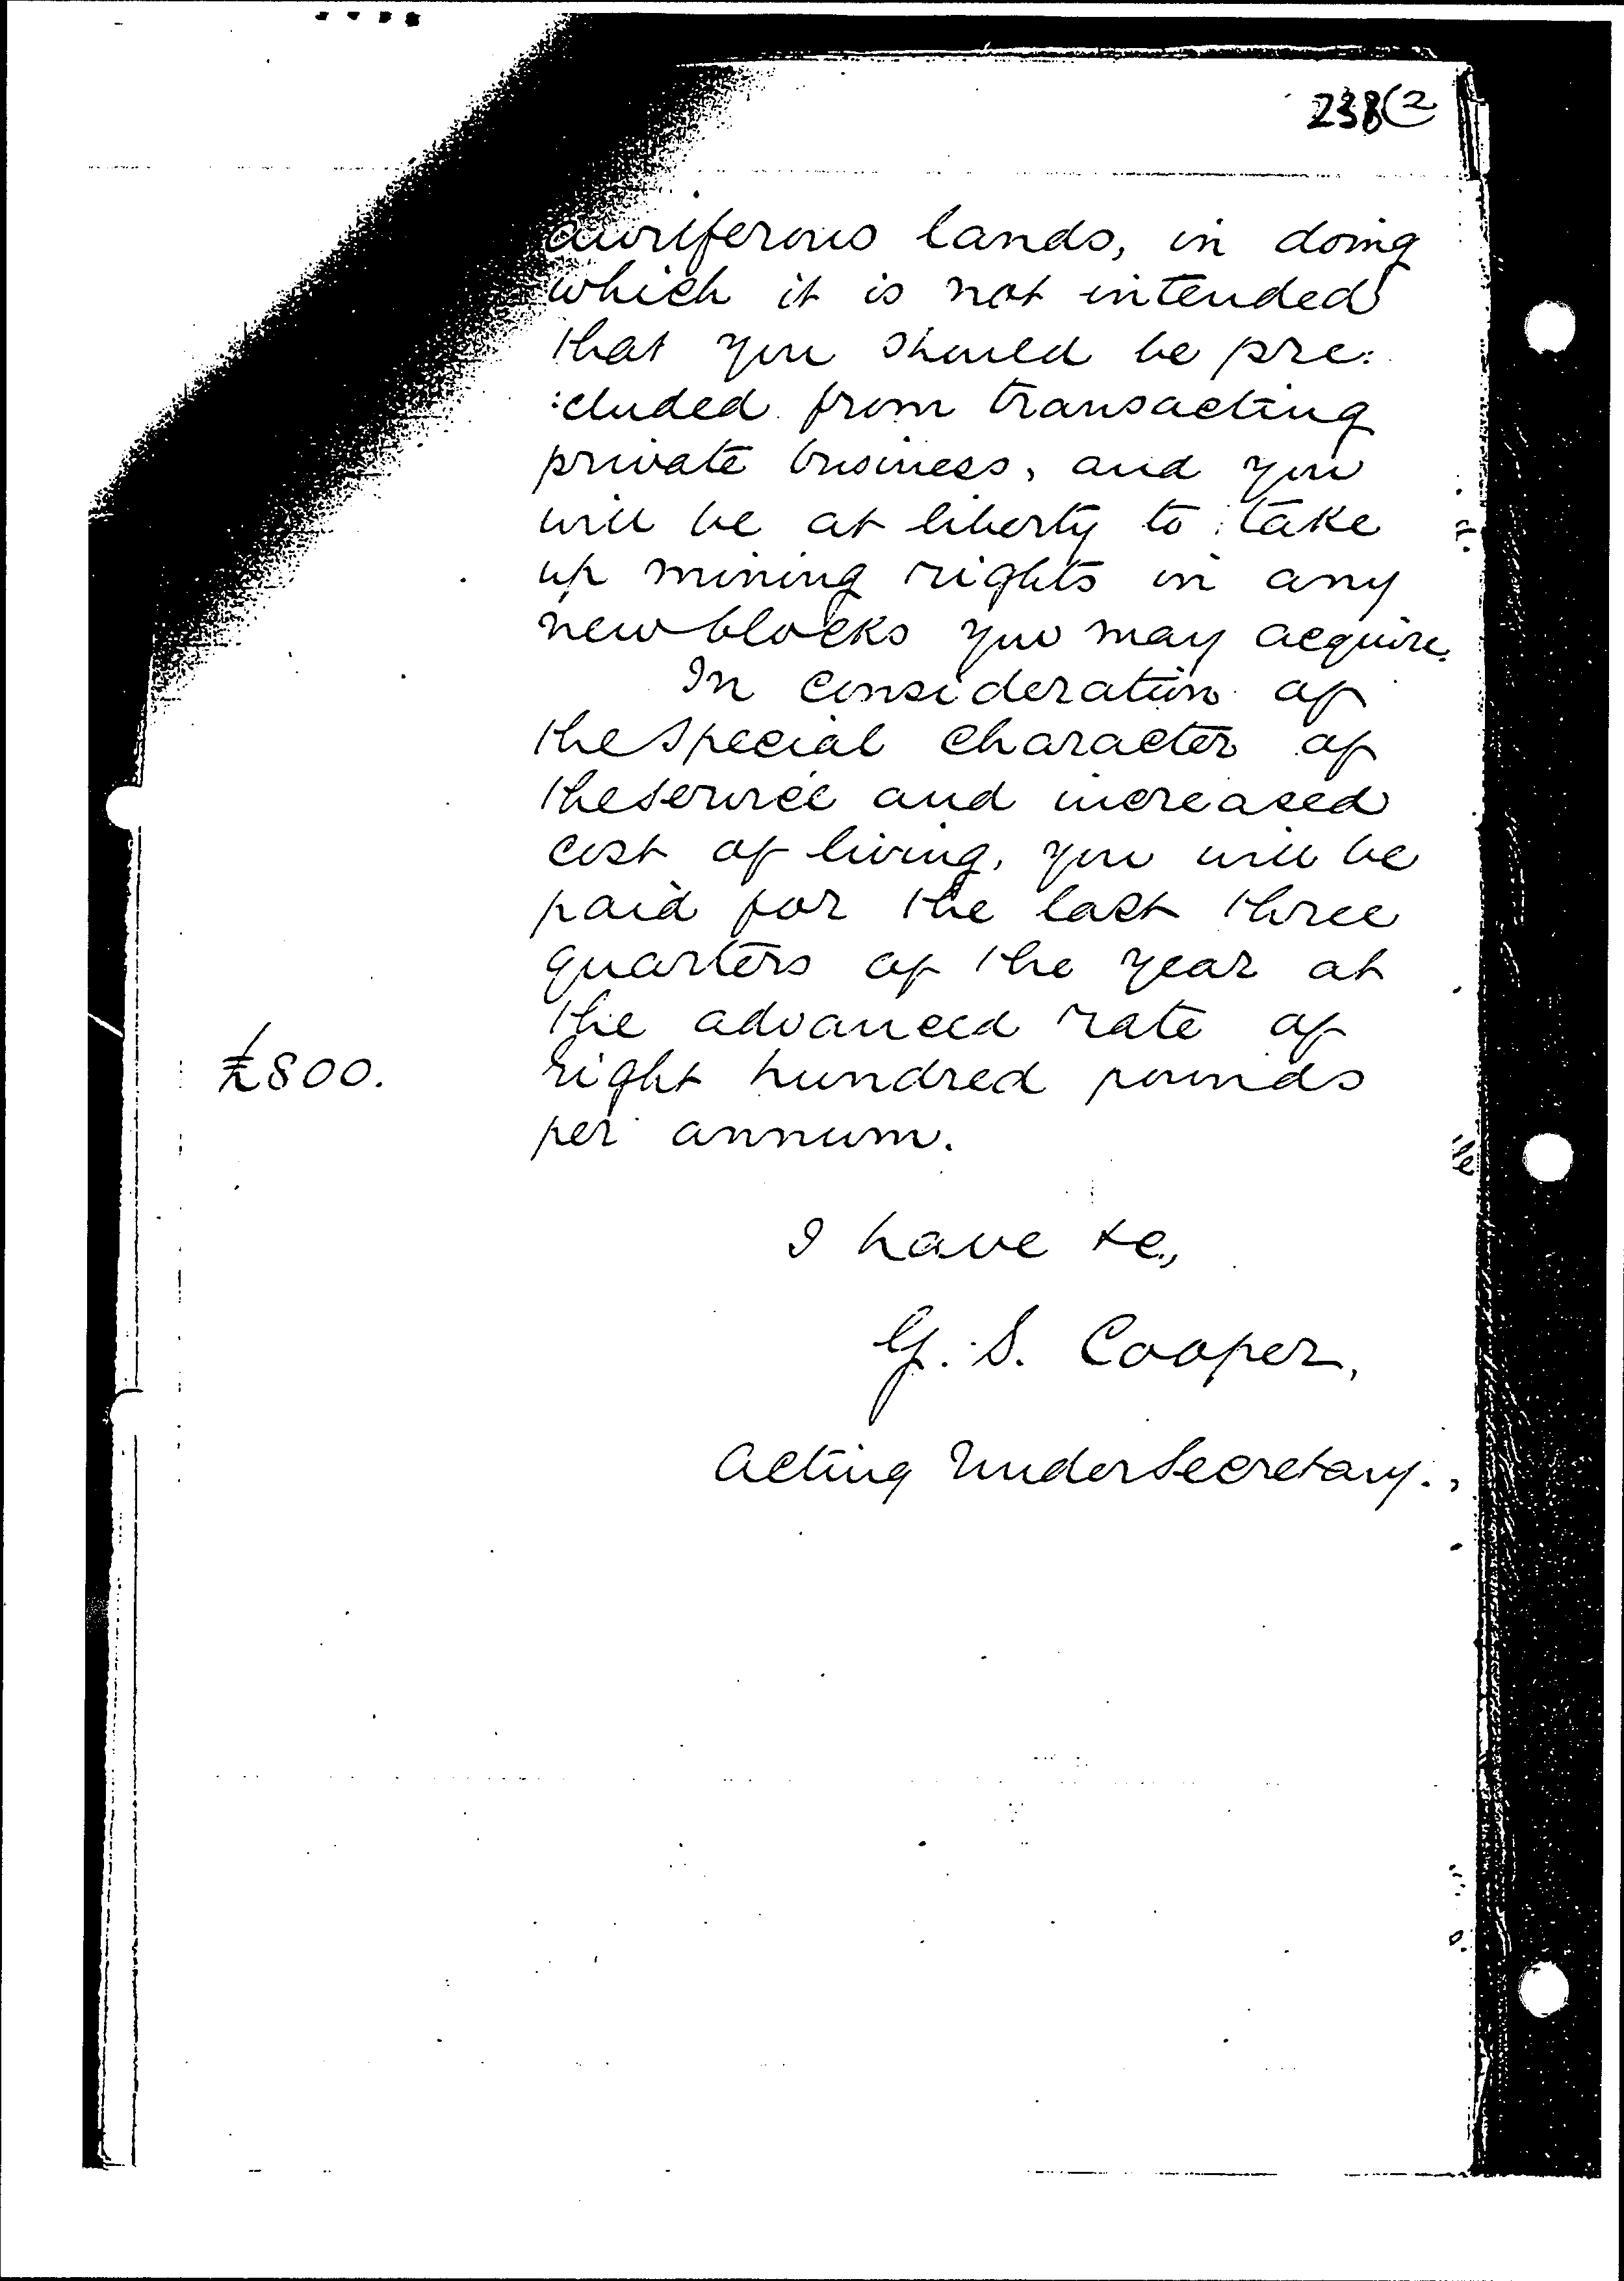 238(2
auriferous lands, in doing
which it is not intended
that you should be pre:
:cluded from transacting
private business, and you
will be at liberty to take
up mining rights in any
new blocks you may acquire.
In consideration of
the special character of
the service and increased
cost of living, you will be
paid for the last three
quarters of the year at
the advanced rate of
£800. eight hundred pounds
per annum.
I have &c.,
G. S. Cooper,
Acting Under Secretary.